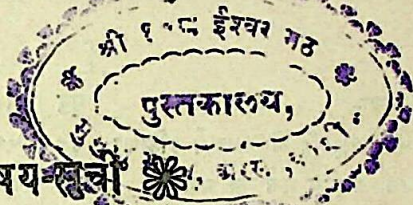 श्री १०८ ईश्वर मठ
पुस्तकालय,
षय-सूची